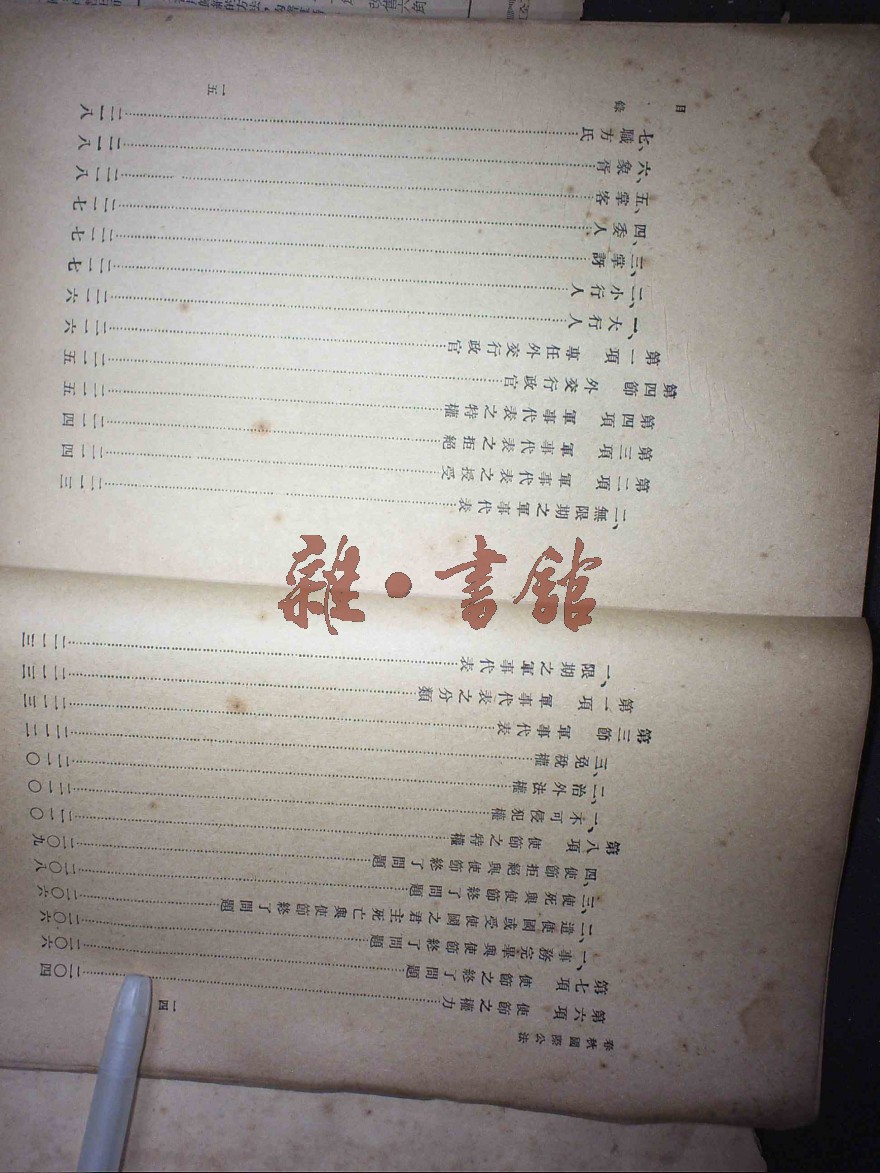 春秋國際公法
第六項 使節之權力……………………二〇四
第七項 使節之終了問題……………………二〇六
一、事務完畢與使節終了問題……………………二〇六
二、遣使國或受使國之君主死亡與使節終了問題……………………二〇六
三、使死與使節終了問題……………………二〇八
四、使節拒絕與使節終了問題……………………二〇九
第八項 使節之特權……………………二一〇
一、不可侵犯權……………………二一〇
二、治外法權……………………二一〇
三、免稅權……………………二一二
第三節 軍事代表……………………二一三
第一項 軍事代表之分類……………………二一三
一、限期之軍事代表……………………二一三
一四
目錄
二、無限期之軍事代表……………………二一三
第二項 軍事代表之授受……………………二一四
第三項 軍事代表之拒絕……………………二一四
第四項 軍事代表之特權……………………二一五
第四節 外交行政官……………………二一五
第一項 專任外交行政官……………………二一六
一、大行人……………………二一六
二、小行人……………………二一七
三、掌訝……………………二一七
四、委人……………………二一七
五、掌客……………………二一八
六、象胥……………………二一八
七、職方氏……………………二一八
一五
雜·書館